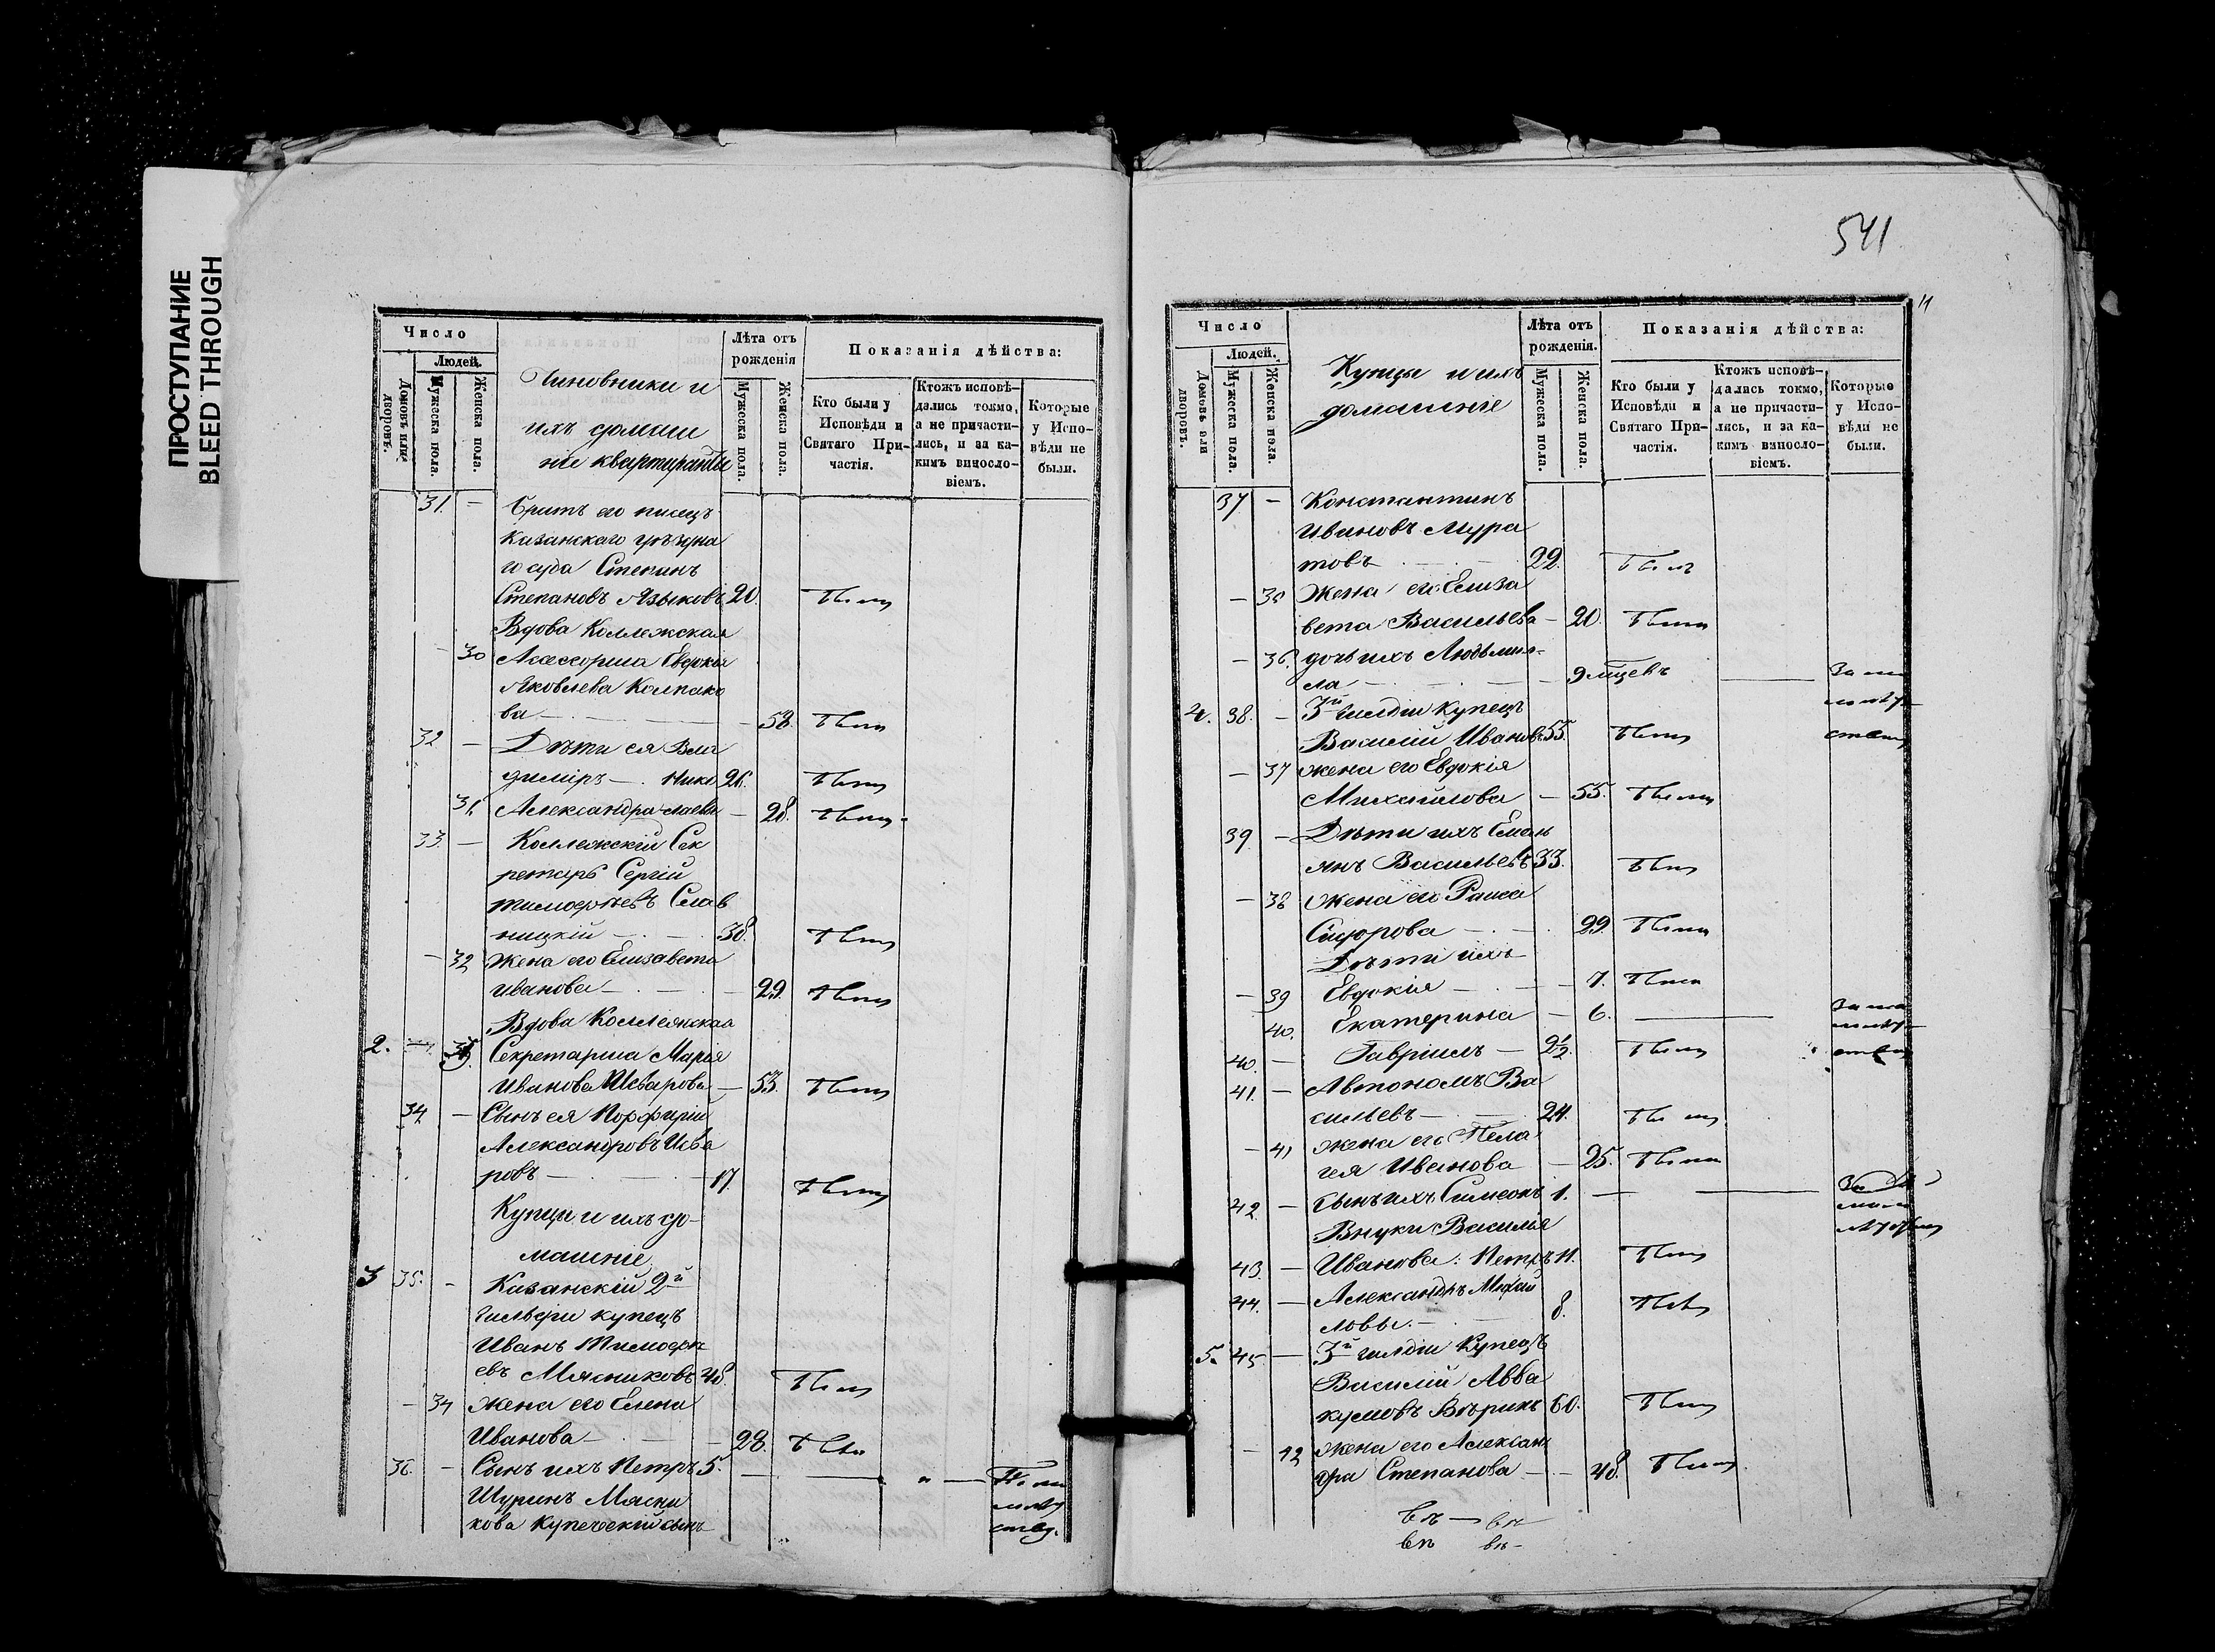 ПРОСТУПАНИЕ
BLEED THROUGH
Число
Людей.
Домовъ или дворовъ.
Мужеска пола.
Женска пола.
Чиновники и
ихъ домаш
ніе квартиранты
Лѣта отъ
рожденія
Мужеска пола.
Женска пола.
Показанія дѣйства:
Кто были у
Исповѣди и
Святаго При-
частія.
Ктожъ исповѣ-
дались токмо,
а не причасти-
лись, и за ка-
кимъ виносло-
віемъ.
Которые
у Испо-
вѣди не
были.
31. — Братъ его писецъ
Казанскаго уѣздна
го суда Степанъ
Степановъ Языковъ 20.
Вдова Коллежская
— 30 Асессорша Евдокія
Яковлева Колпако
ва — — 58.
32 — Дѣти ея Вла
димиръ — Нико 26.
31. Александра лаевы — 28.
33. — Коллежскій Сек
ретарь Сергій
Тимофѣевъ Слав
ницкій — 38.
— 32 Жена его Елизавета
Иванова — — 29
Вдова Коллежская
2. — 33. Секретарша Марія
Иванова — 53.
34 — Сынъ ея Порфирій
Александровъ
ровъ — 17.
Купцы и ихъ до-
машніе
3 35. — Казанскій 2й
гильдіи купецъ
Иванъ Тимофѣ
евъ Мясниковъ 48.
— 34 Жена его Елена
Иванова — — 28.
36. — Сынъ ихъ Петръ 5. — — " —
Шуринъ Мясни
кова купеческій сынъ
541
11
Число
Людей.
Домовъ или дворовъ.
Мужеска пола.
Женска пола.
Купцы и ихъ
домашніе
Лѣта отъ
рожденія.
Мужеска пола.
Женска пола.
Показанія дѣйства:
Кто были у
Исповѣди и
Святаго При-
частія.
Ктожъ исповѣ-
дались токмо,
а не причасти-
лись, и за ка-
кимъ виносло-
віемъ.
Которые
у Испо-
вѣди не
были.
37 — Константинъ
Ивановъ Мура
товъ — 22.
— 35 Жена его Елиза
вета Васильева — 20.
— 36. дочь ихъ Людьми-
ла — — 9 мцевъ — За ма
4. 38. — 3й гильдіи купецъ
Василій Ивановъ 55.
— 37 жена его Евдокія
Михайлова — 55.
39. — Дѣти ихъ Емель
янъ Васильевъ 33.
— 38 Жена его Раиса
Сидорова — 29.
Дѣти ихъ
— 39 Евдокія — — 7.
40. Екатерина — 6. — За ма
40. — Гавріилъ — 2½.
41. — Автономъ Ва
сильевъ — 24.
— 41 жена его Пела
гея Иванова — 25.
42. — Сынъ ихъ Симеонъ 1. —
Внуки Василія
43. — Иванова: Петръ 11.
44. — Александръ Михай
ловы. — 8.
5. 45. — 3й гильдіи Купецъ
Василій Авва
кумовъ Вѣринъ 60.
— 42 жена его Алексан
дра Степанова — — 48.